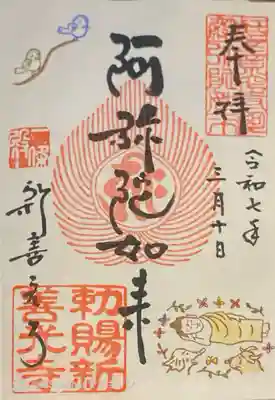 奉拝
令和七年
三月十日
阿弥陀如来
新善光寺
勅賜新
善光寺